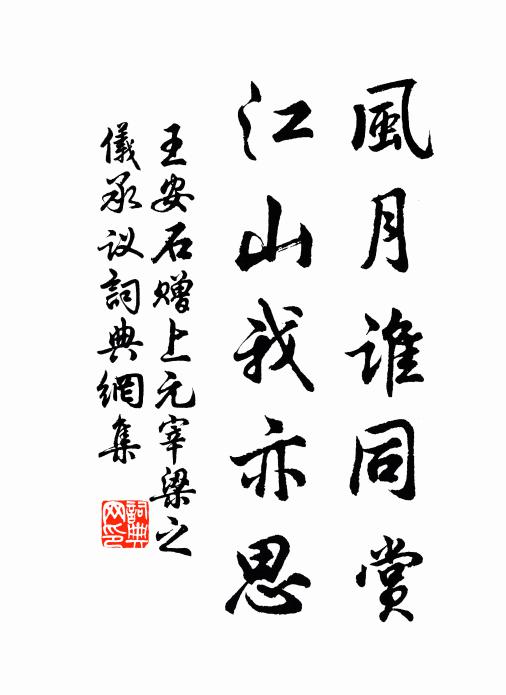 風月誰同賞
江山我亦思
王安石贈上元宰梁之
儀承议詞典網集
詞典
网印